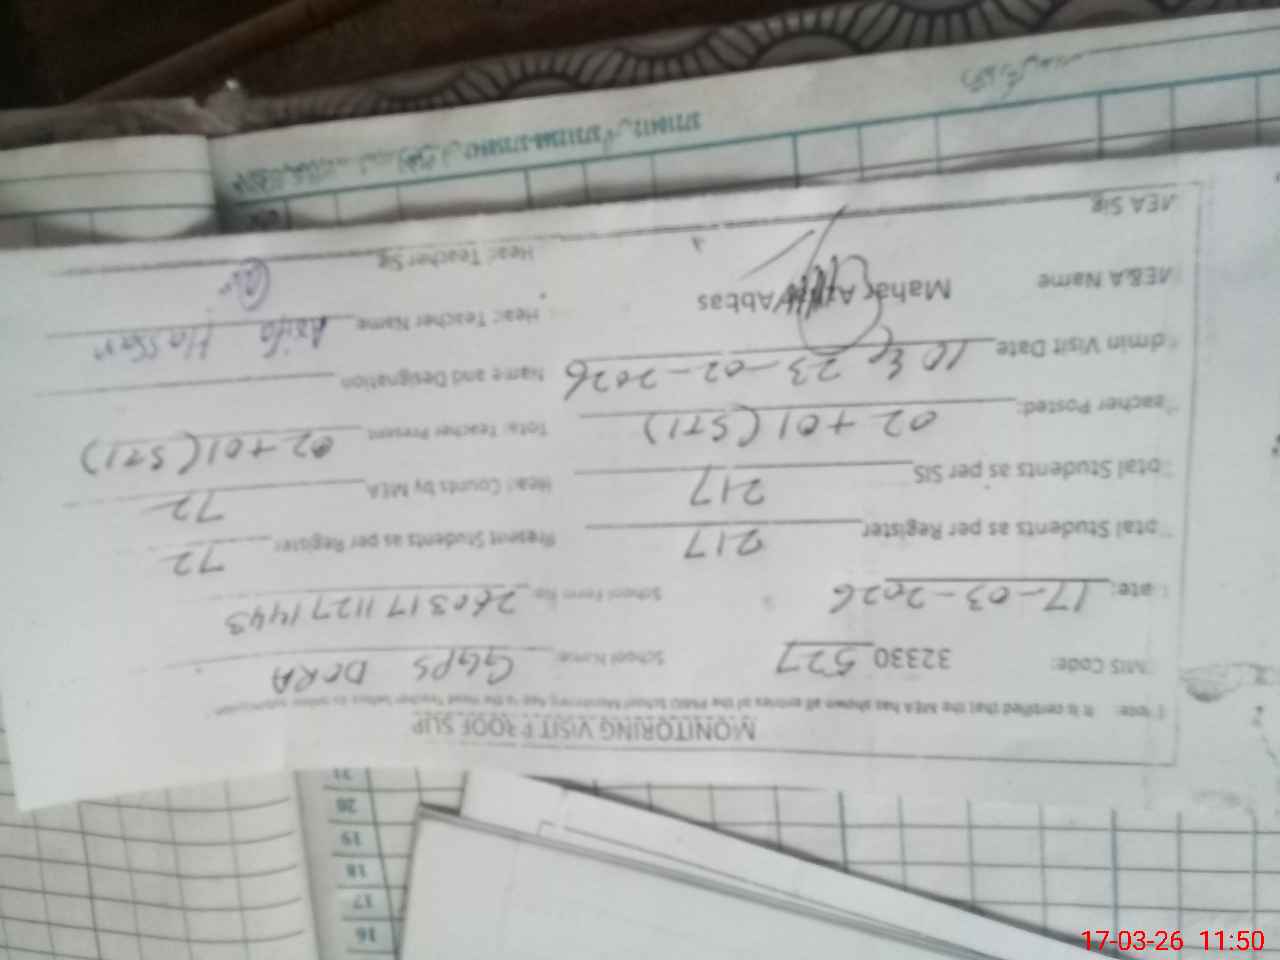 MONITORING VISIT PROOF SLIP
It is certified that the MEA has shown all entries of the PMIU School Monitoring App to the Head Teacher before its online submission
MIS Code: 32330 527 School Name: GGPS DERA
ate: 17-03-2026 School Form No: 26031711271443
otal Students as per Register 217 Present Students as per Register 72
otal Students as per SIS 217 Head Counts by MEA 72
eacher Posted: 02+01(STI) Total Teacher Present 02+01(STI)
dmin Visit Date 23-02-2026 Name and Designation
ME&A Name Mahar Abbas Head Teacher Name Asifa Hassan
MEA Sig Head Teacher Sig
16
17
18
19
20
21
17-03-26 11:50